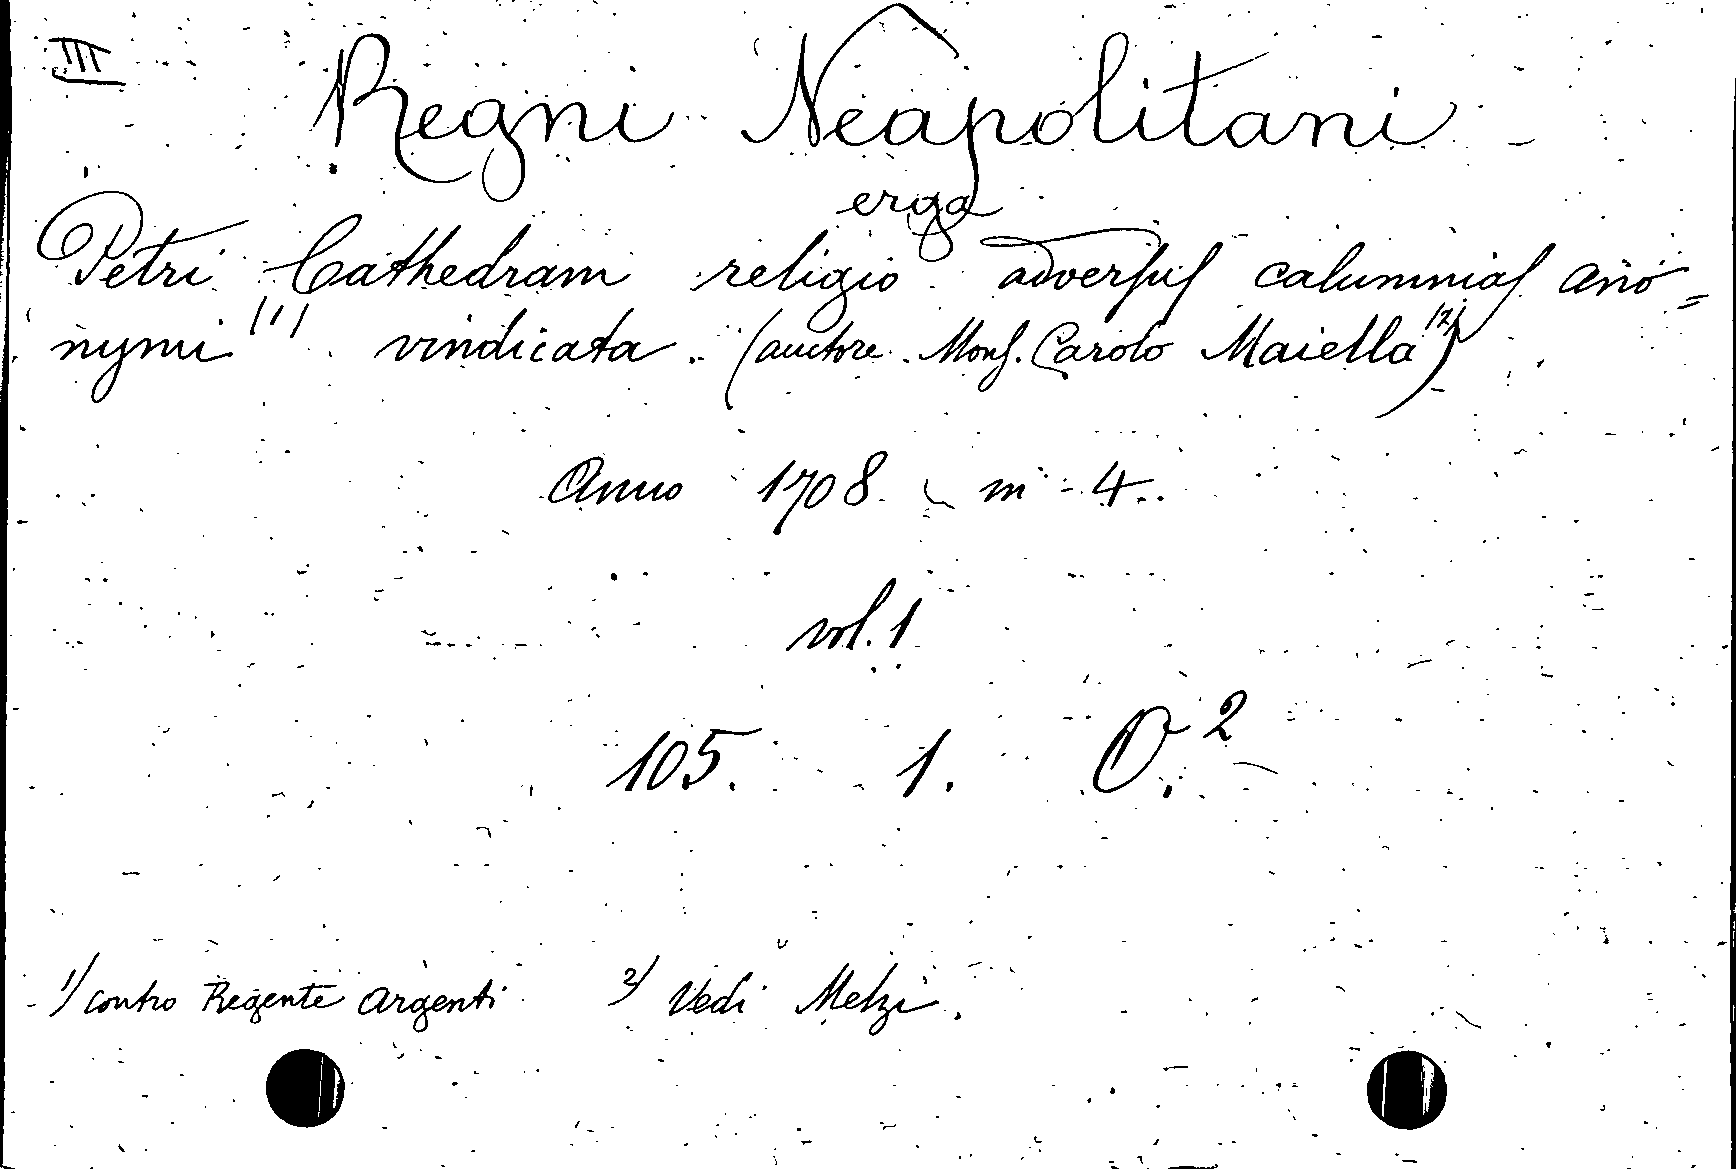 III
Regni Neapolitani
erga
Petri Cathedram religio adversus calumnias anó=
nymi (1) vindicata. (auctore Mons. Carolo Maiella (2))
Anno 1708. in 4..
vol. 1
105. 1. O.2
1) contro Regente Argenti 2) Vedi Melzi.